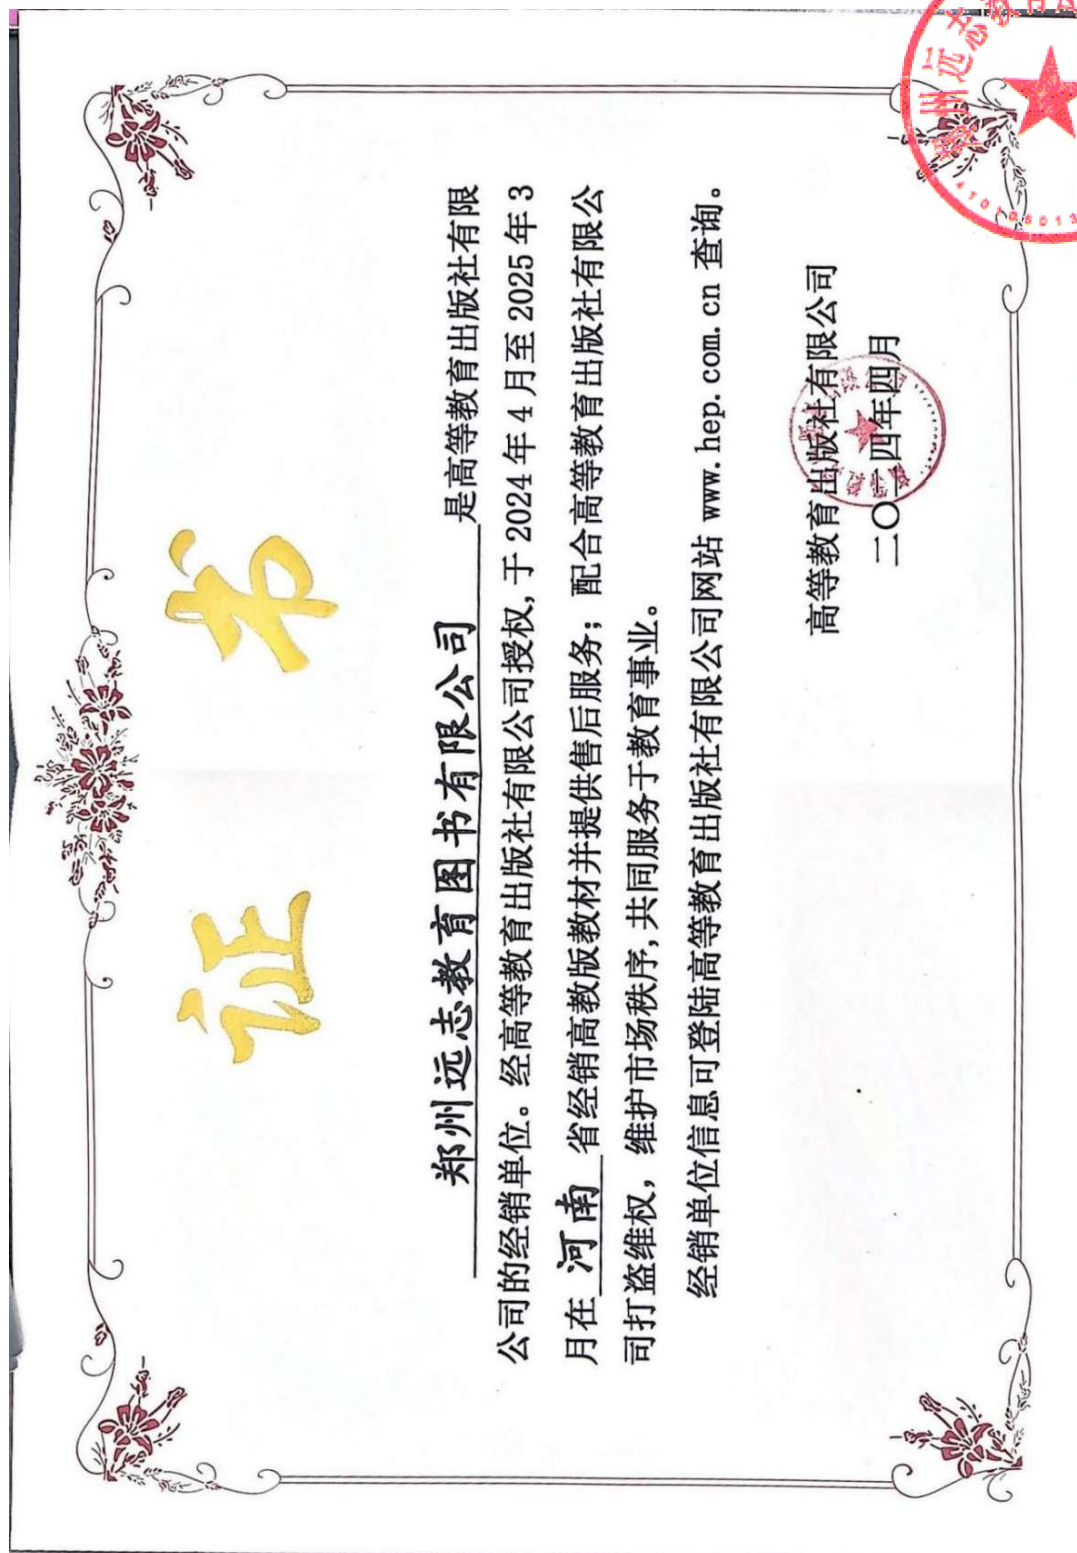 证书
郑州远志教育图书有限公司 是高等教育出版社有限
公司的经销单位。经高等教育出版社有限公司授权,于 2024 年 4 月至 2025 年 3
月在 河南 省经销高教版教材并提供售后服务；配合高等教育出版社有限公
司打盗维权，维护市场秩序,共同服务于教育事业。
经销单位信息可登陆高等教育出版社有限公司网站 www.hep.com.cn 查询。
高等教育出版社有限公司
二〇二四年四月
郑州远志教